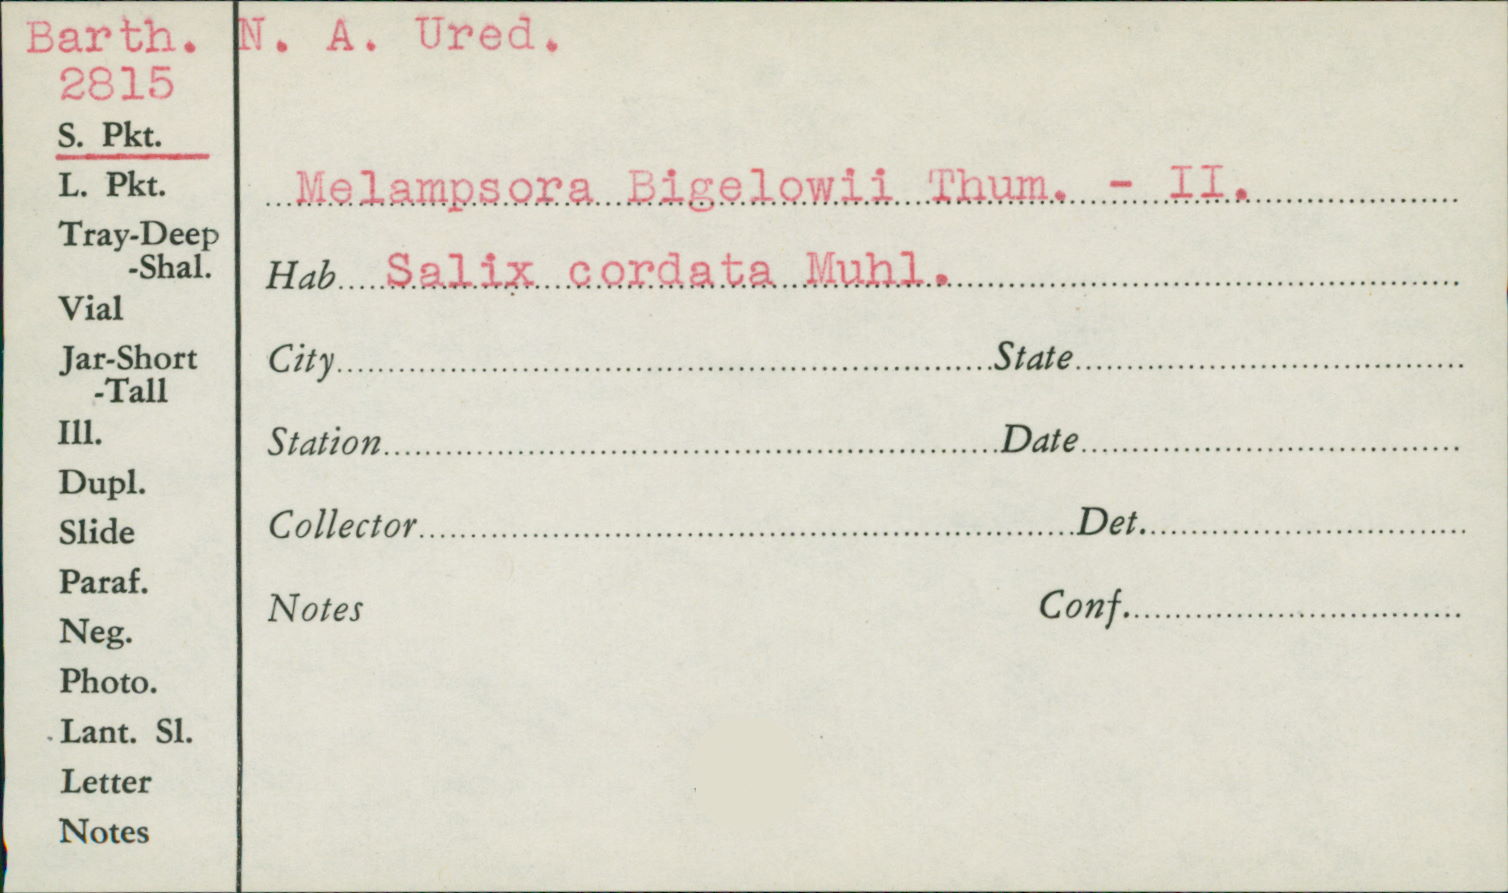 Barth. N. A. Ured.
2815
S. Pkt.
L. Pkt.
Tray-Deep
-Shal.
Vial
Jar-Short
-Tall
Ill.
Dupl.
Slide
Paraf.
Neg.
Photo.
Lant. Sl.
Letter
Notes
Melampsora Bigelowii Thum. - II.
Hab Salix cordata Muhl.
City State
Station Date
Collector Det.
Notes Conf.